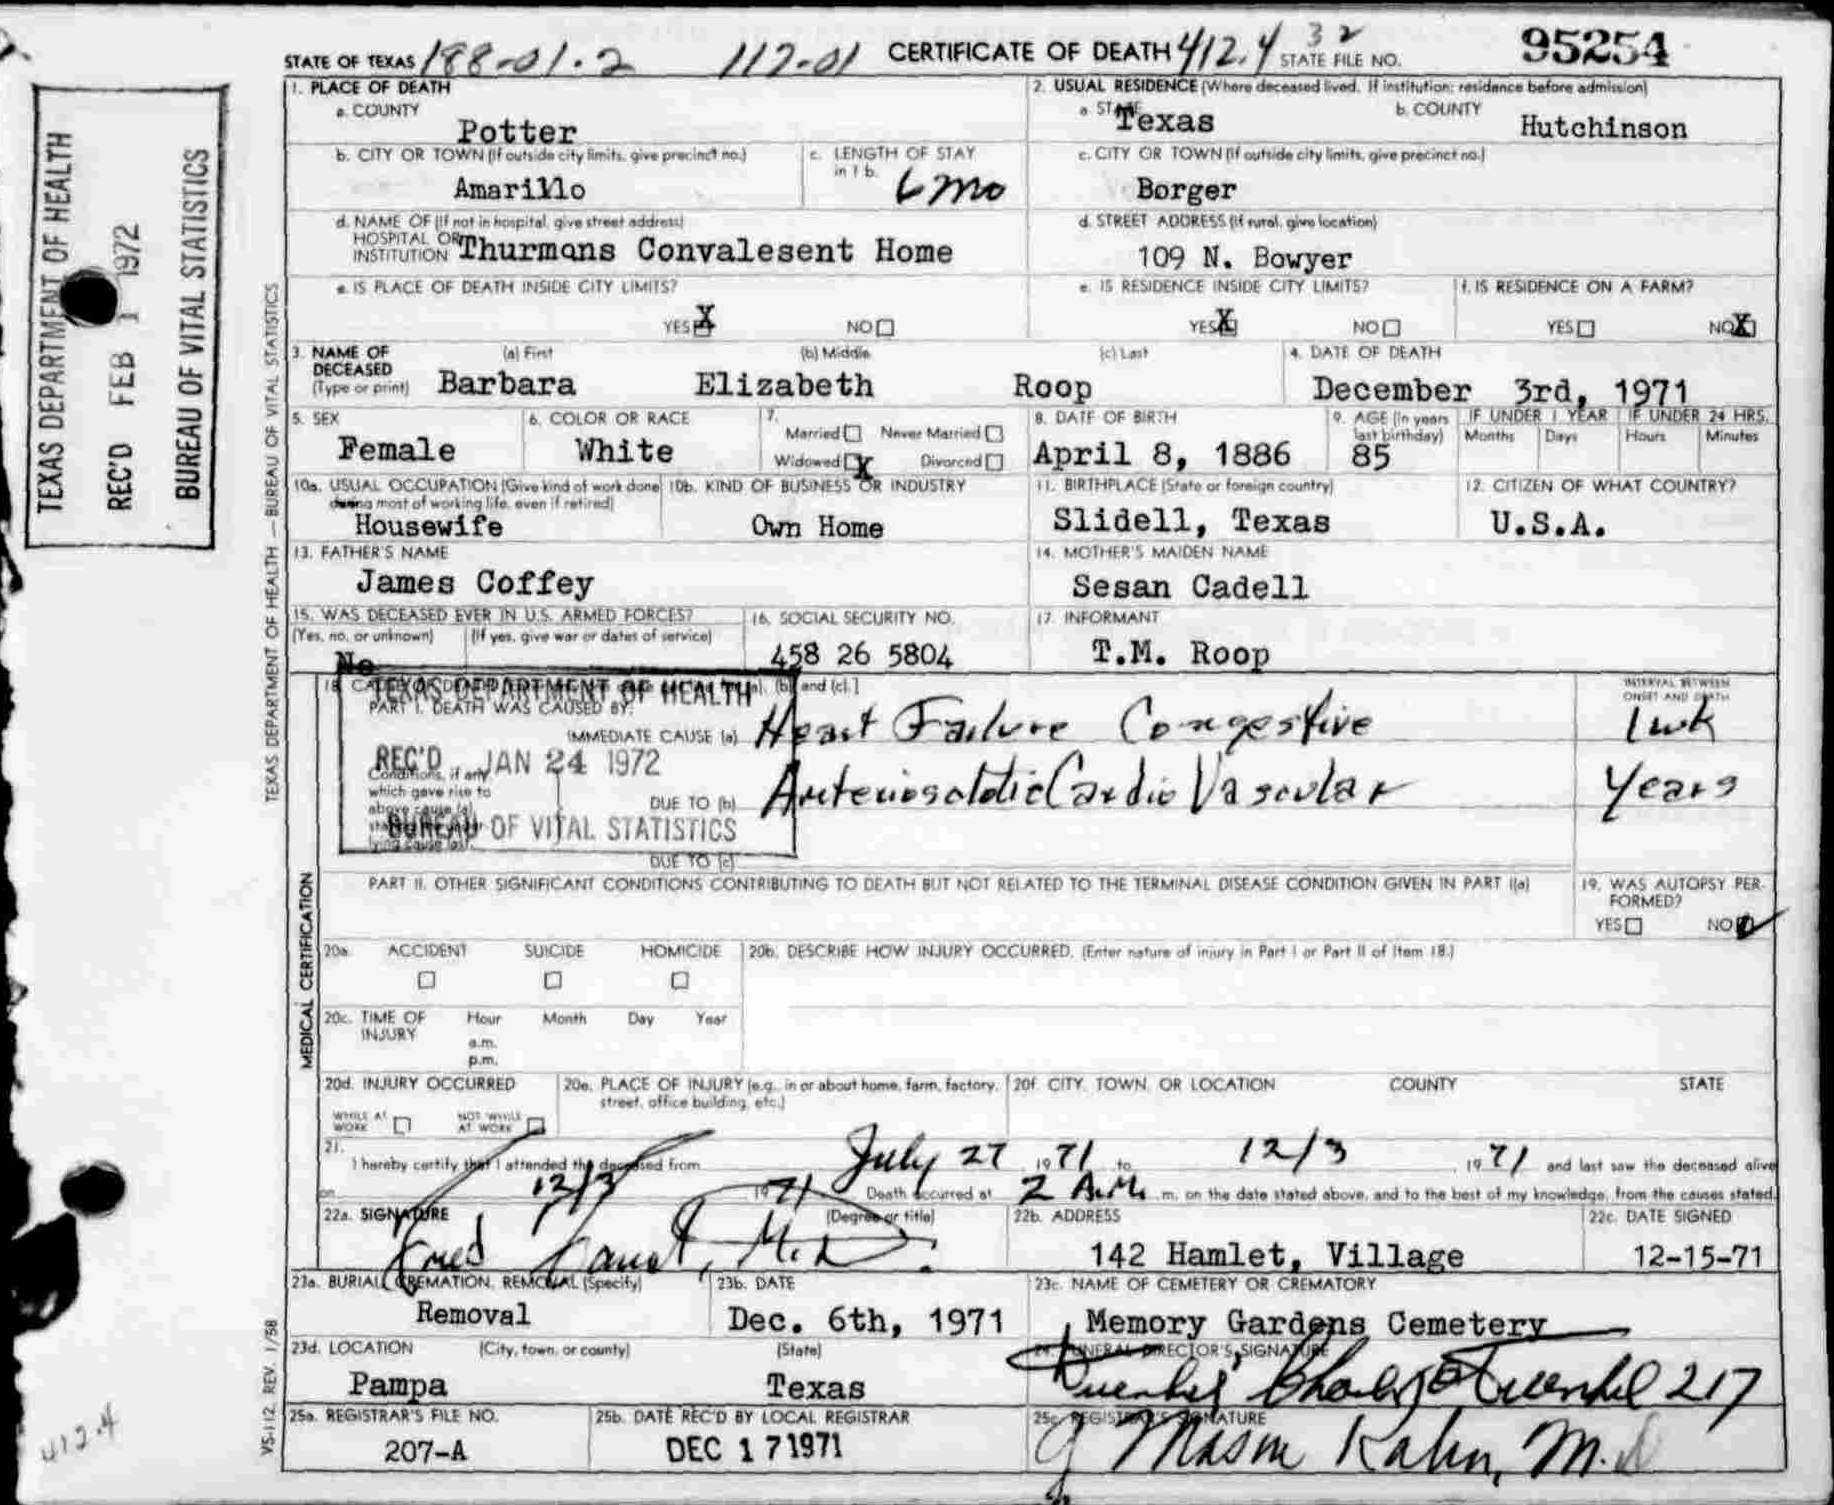 STATE OF TEXAS 188-01.2 112-01 CERTIFICATE OF DEATH 412.4 32 STATE FILE NO. 95254
TEXAS DEPARTMENT OF HEALTH
REC'D FEB 1 1972
BUREAU OF VITAL STATISTICS
TEXAS DEPARTMENT OF HEALTH — BUREAU OF VITAL STATISTICS
1. PLACE OF DEATH
a. COUNTY
Potter
2. USUAL RESIDENCE (Where deceased lived. If institution: residence before admission)
a. STATE
Texas
b. COUNTY
Hutchinson
b. CITY OR TOWN (If outside city limits, give precinct no.)
Amarillo
c. LENGTH OF STAY in 1 b.
6 mo
c. CITY OR TOWN (If outside city limits, give precinct no.)
Borger
d. NAME OF (If not in hospital, give street address)
HOSPITAL OR
INSTITUTION Thurmans Convalesent Home
d. STREET ADDRESS (If rural, give location)
109 N. Bowyer
e. IS PLACE OF DEATH INSIDE CITY LIMITS?
YES X NO
e. IS RESIDENCE INSIDE CITY LIMITS?
YES X NO
f. IS RESIDENCE ON A FARM?
YES NO X
3. NAME OF DECEASED (Type or print)
(a) First (b) Middle (c) Last
Barbara Elizabeth Roop
4. DATE OF DEATH
December 3rd, 1971
5. SEX
Female
6. COLOR OR RACE
White
7. Married Never Married
Widowed X Divorced
8. DATE OF BIRTH
April 8, 1886
9. AGE (In years last birthday)
85
IF UNDER 1 YEAR
Months Days
IF UNDER 24 HRS.
Hours Minutes
10a. USUAL OCCUPATION (Give kind of work done during most of working life, even if retired)
Housewife
10b. KIND OF BUSINESS OR INDUSTRY
Own Home
11. BIRTHPLACE (State or foreign country)
Slidell, Texas
12. CITIZEN OF WHAT COUNTRY?
U.S.A.
13. FATHER'S NAME
James Coffey
14. MOTHER'S MAIDEN NAME
Sesan Cadell
15. WAS DECEASED EVER IN U.S. ARMED FORCES?
(Yes, no, or unknown) (If yes, give war or dates of service)
No
16. SOCIAL SECURITY NO.
458 26 5804
17. INFORMANT
T.M. Roop
(b) and (c).]
PART I. DEATH WAS CAUSED BY:
IMMEDIATE CAUSE (a) Heart Failure Congestive
INTERVAL BETWEEN ONSET AND DEATH
1 wk
Conditions, if any, which gave rise to above cause (a)
lying cause last.
DUE TO (b) Arteriosclotic Cardio Vascular
Years
DUE TO (c)
TEXAS DEPARTMENT OF HEALTH
REC'D JAN 24 1972
BUREAU OF VITAL STATISTICS
MEDICAL CERTIFICATION
PART II. OTHER SIGNIFICANT CONDITIONS CONTRIBUTING TO DEATH BUT NOT RELATED TO THE TERMINAL DISEASE CONDITION GIVEN IN PART I(a)
19. WAS AUTOPSY PERFORMED?
YES NO
20a. ACCIDENT SUICIDE HOMICIDE
20b. DESCRIBE HOW INJURY OCCURRED. (Enter nature of injury in Part I or Part II of Item 18.)
20c. TIME OF INJURY
Hour Month Day Year
a.m.
p.m.
20d. INJURY OCCURRED
WHILE AT WORK NOT WHILE AT WORK
20e. PLACE OF INJURY (e.g., in or about home, farm, factory, street, office building, etc.)
20f. CITY, TOWN, OR LOCATION COUNTY STATE
21.
I hereby certify that I attended the deceased from July 27, 1971 to 12/3, 1971 and last saw the deceased alive
on 12/3 1971 Death occurred at 2 A.M. m. on the date stated above, and to the best of my knowledge, from the causes stated.
22a. SIGNATURE (Degree or title)
M.D.
22b. ADDRESS
142 Hamlet, Village
22c. DATE SIGNED
12-15-71
23a. BURIAL, CREMATION, REMOVAL (Specify)
Removal
23b. DATE
Dec. 6th, 1971
23c. NAME OF CEMETERY OR CREMATORY
Memory Gardens Cemetery
23d. LOCATION (City, town, or county) (State)
Pampa Texas
24. FUNERAL DIRECTOR'S SIGNATURE
217
25a. REGISTRAR'S FILE NO.
207-A
25b. DATE REC'D BY LOCAL REGISTRAR
DEC 17 1971
25c. REGISTRAR'S SIGNATURE
J Mason Kahn, M.D
VS-112 REV. 1/58
412.4